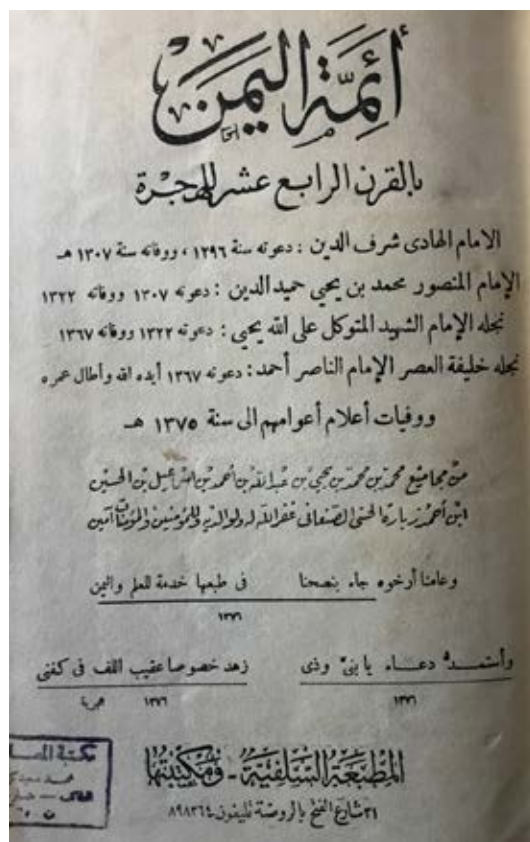 أئمة اليمن
بالقرن الرابع عشر للهجرة
الامام الهادى شرف الدين : دعوته سنة ١٢٩٦ ، ووفاته سنة ١٣٠٧ هـ
الإمام المنصور محمد بن يحيى حميد الدين : دعوته ١٣٠٧ ووفاته ١٣٢٢
نجله الإمام الشهيد المتوكل على الله يحيى : دعوته ١٣٢٢ ووفاته ١٣٦٧
نجله خليفة العصر الإمام الناصر أحمد : دعوته ١٣٦٧ أيده الله وأطال عمره
ووفيات أعلام أعوامهم الى سنة ١٣٧٥ هـ
من مجاميع محمد بن محمد بن يحيى بن عبد الله بن أحمد بن اسماعيل بن الحسين
ابن أحمد زبارة الحسنى الصنعانى غفر الله له ولوالديه وللمؤمنين والمؤمنات آمين
وعامنا أرخوه جاء بنصحنا فى طبعها خدمة للعلم واليمن
١٣٧٦
وأستمد دعاء يا بنى وذى زهد خصوصا عقيب اللف فى كفنى
١٣٧٦ ١٣٧٦ هجرية
المطبعة السلفية - ومكتبتها
٢١ شارع الفتح بالروضة تليفون ٨٩٨٣٦٤
مكتبة
محمد